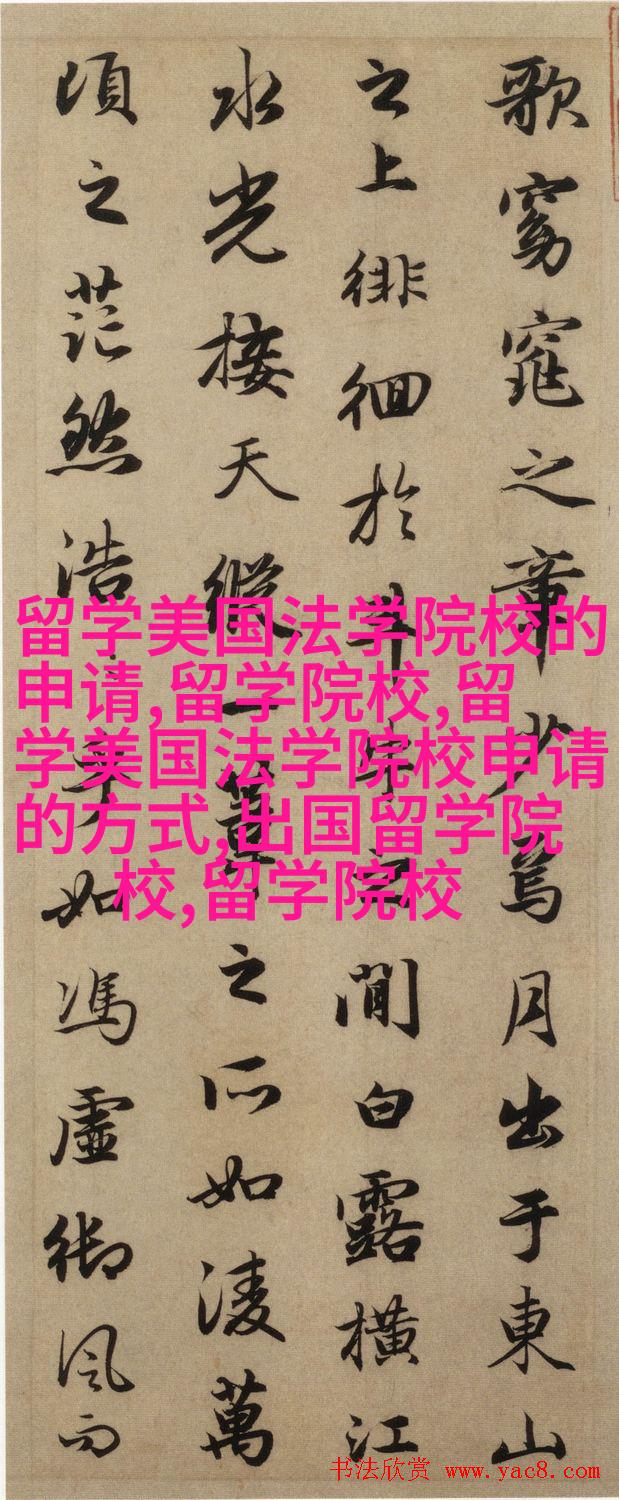 歌窈窕之章少焉月出于東山
之上徘徊於斗牛之間白露橫江
水光接天縱一葦之所如淩萬
頃之茫然浩浩乎如馮虛御風而
留学美国法学院校的
申请,留学院校,留
学美国法学院校申请
的方式,出国留学院
校,留学院校
书法欣赏 www.yac8.com